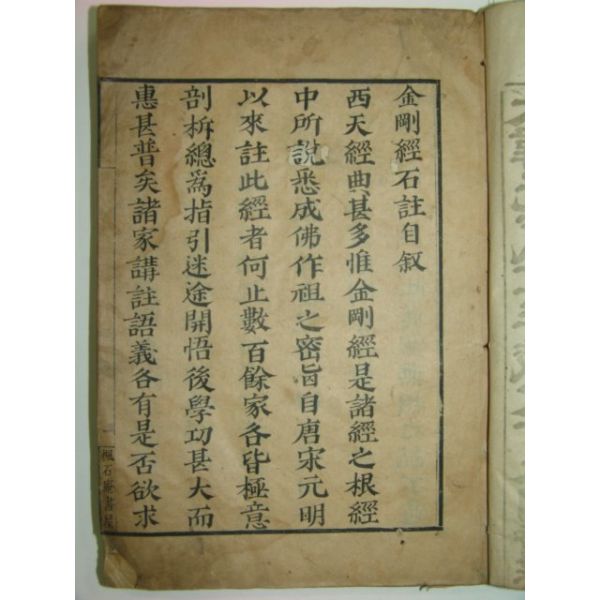 金剛經石註自叙
西天經典甚多惟金剛經是諸經之根經
中所說悉成佛作祖之密旨自唐宋元明
以來註此經者何止數百餘家各皆極意
剖柝總為指引迷途開悟後學功甚大而
惠甚普矣諸家講註語義各有是否欲求
楓石庵書屋